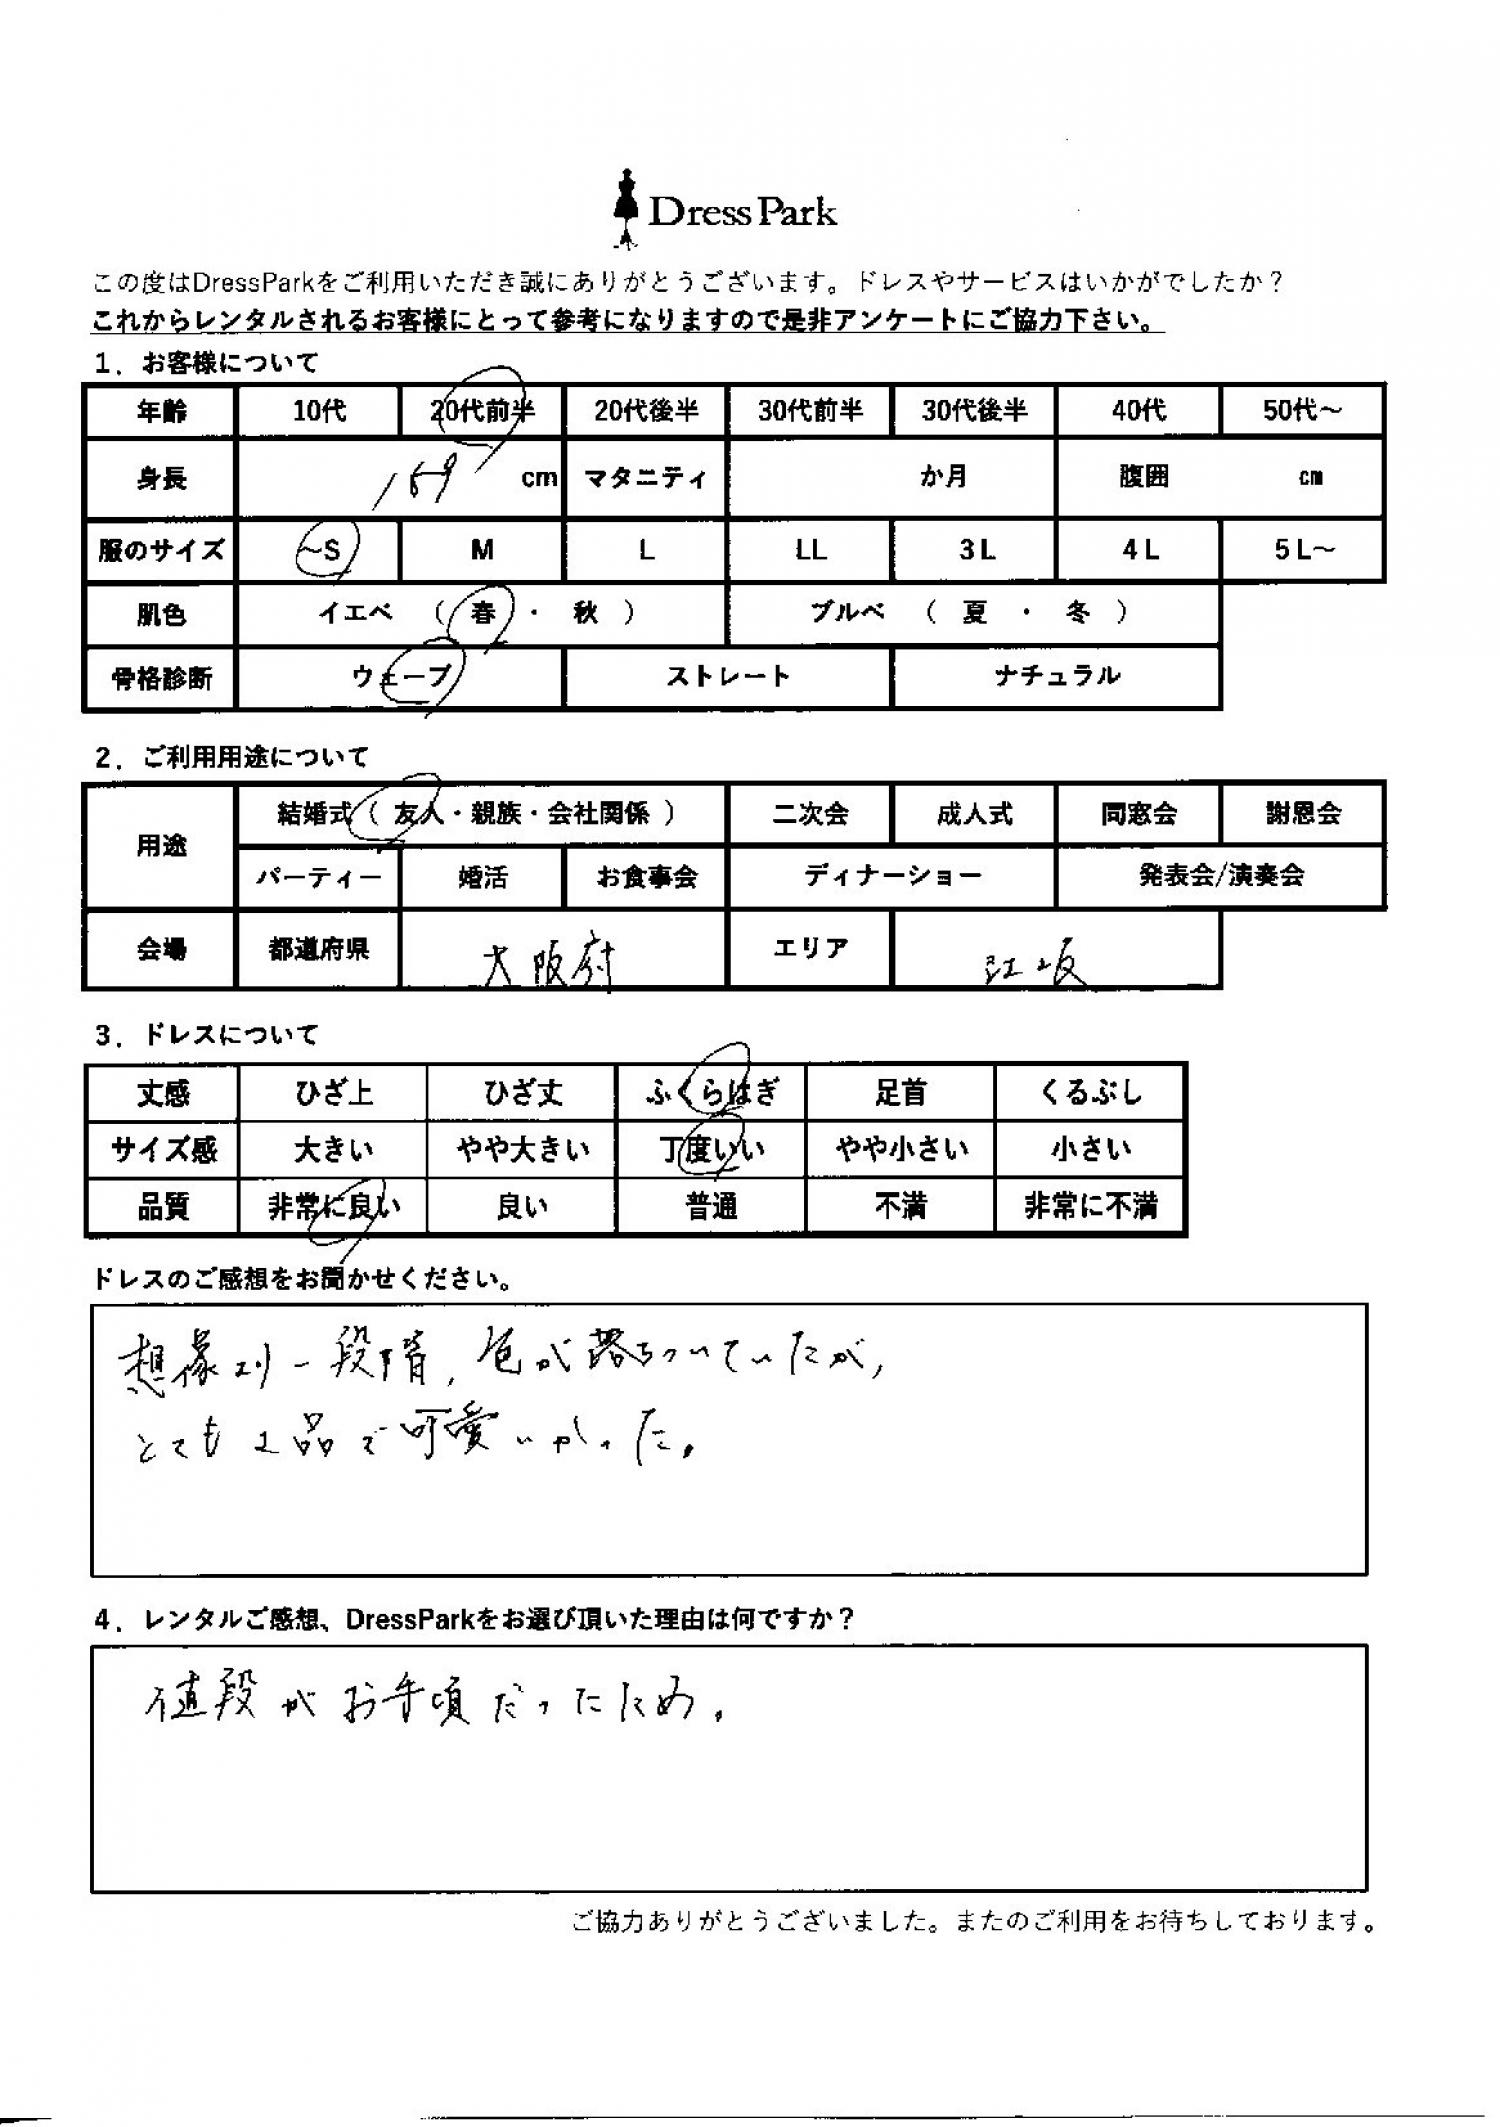 Dress Park
この度はDressParkをご利用いただき誠にありがとうございます。ドレスやサービスはいかがでしたか?
これからレンタルされるお客様にとって参考になりますので是非アンケートにご協力下さい。
1．お客様について
年齢 10代 20代前半 20代後半 30代前半 30代後半 40代 50代～
身長 159 cm マタニティ か月 腹囲 cm
服のサイズ ～S M L LL 3L 4L 5L～
肌色 イエベ （ 春 ・ 秋 ） ブルベ （ 夏 ・ 冬 ）
骨格診断 ウェーブ ストレート ナチュラル
2．ご利用用途について
用途 結婚式（ 友人・親族・会社関係 ） 二次会 成人式 同窓会 謝恩会
パーティー 婚活 お食事会 ディナーショー 発表会/演奏会
会場 都道府県 大阪府 エリア 江坂
3．ドレスについて
丈感 ひざ上 ひざ丈 ふくらはぎ 足首 くるぶし
サイズ感 大きい やや大きい 丁度いい やや小さい 小さい
品質 非常に良い 良い 普通 不満 非常に不満
ドレスのご感想をお聞かせください。
想像より一段階，色が落ちついていたが，
とても上品で可愛いかった。
4．レンタルご感想、DressParkをお選び頂いた理由は何ですか？
値段がお手頃だったため。
ご協力ありがとうございました。またのご利用をお待ちしております。